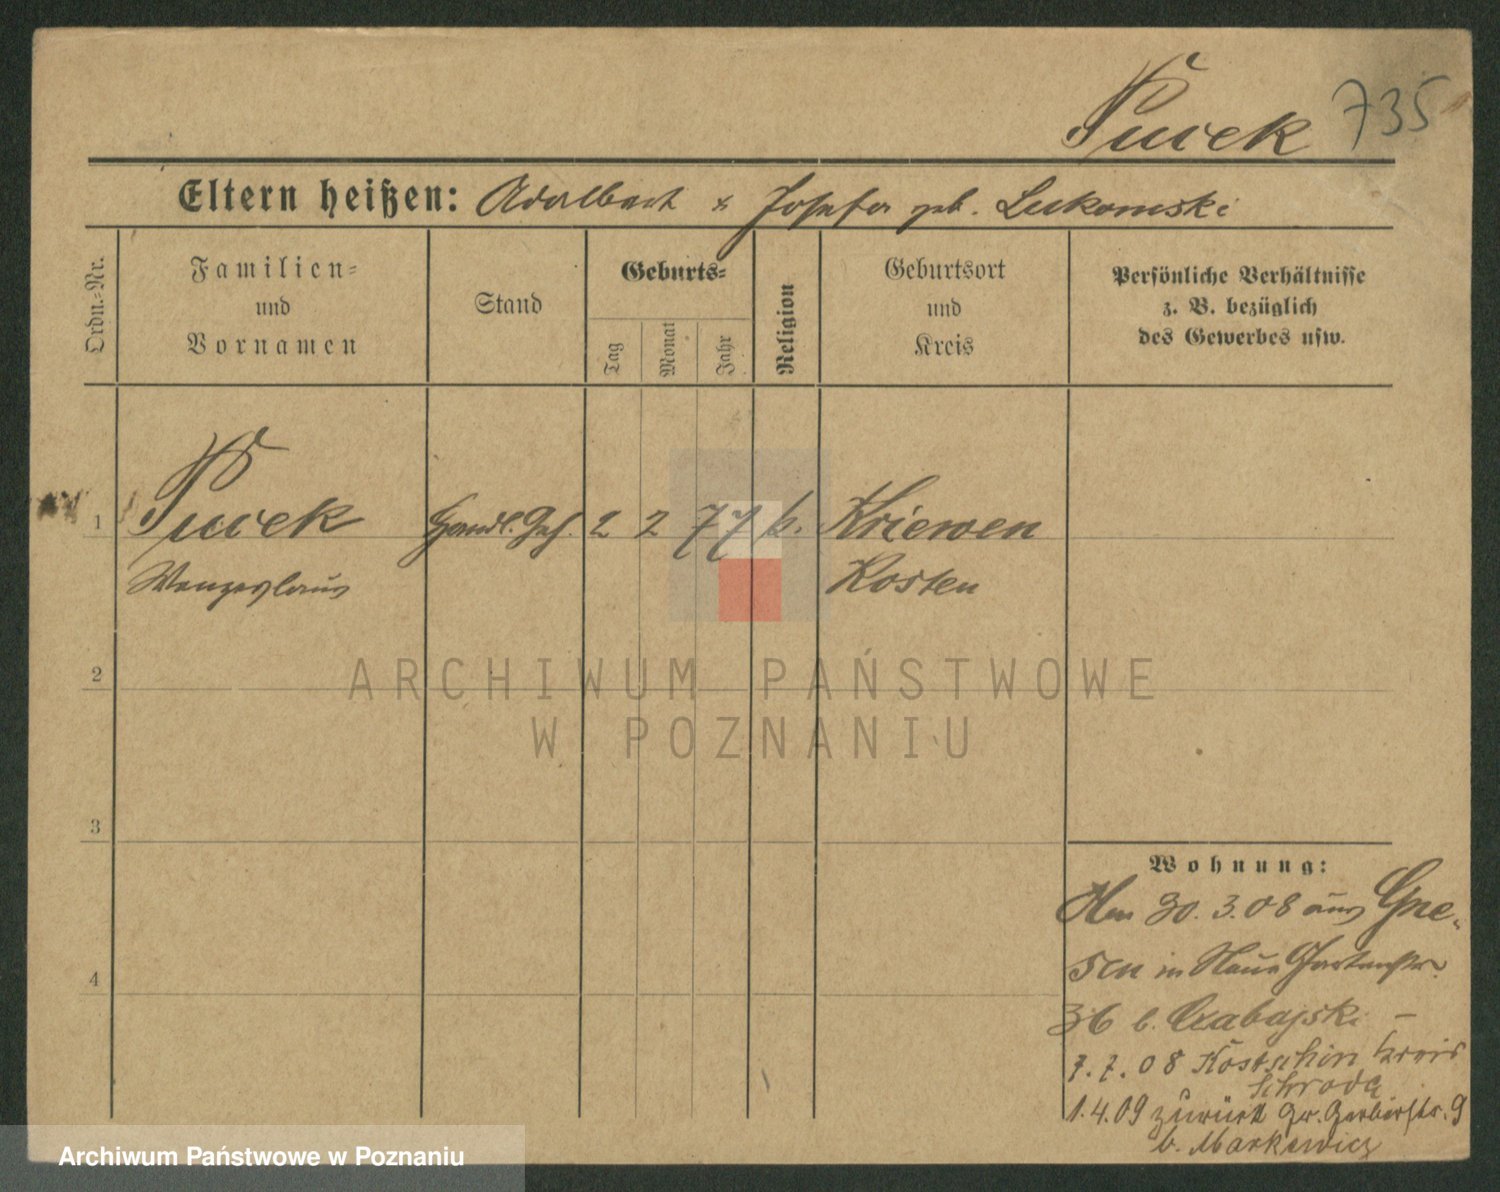 Turek 735
Eltern heißen: Adalbert u Josefa geb. Lukomski
Ordn.-Nr.
Familien-
und
Vornamen
Stand
Geburts-
Tag
Monat
Jahr
Religion
Geburtsort
und
Kreis
Persönliche Verhältnisse
z. B. bezüglich
des Gewerbes usw.
1 Turek Handl. Geh. 2 2 77 k. Kriewen
Wenzeslaus Kosten
2
ARCHIWUM PAŃSTWOWE
W POZNANIU
3
Wohnung:
Am 30.3.08 aus Gne-
sen in Neue Gartenstr.
4
36 b. Czabajski –
7.7.08 Kostschin Kreis
Schroda
1.4.09 zurück Gr. Gerberstr. 9
b. Markewicz
Archiwum Państwowe w Poznaniu